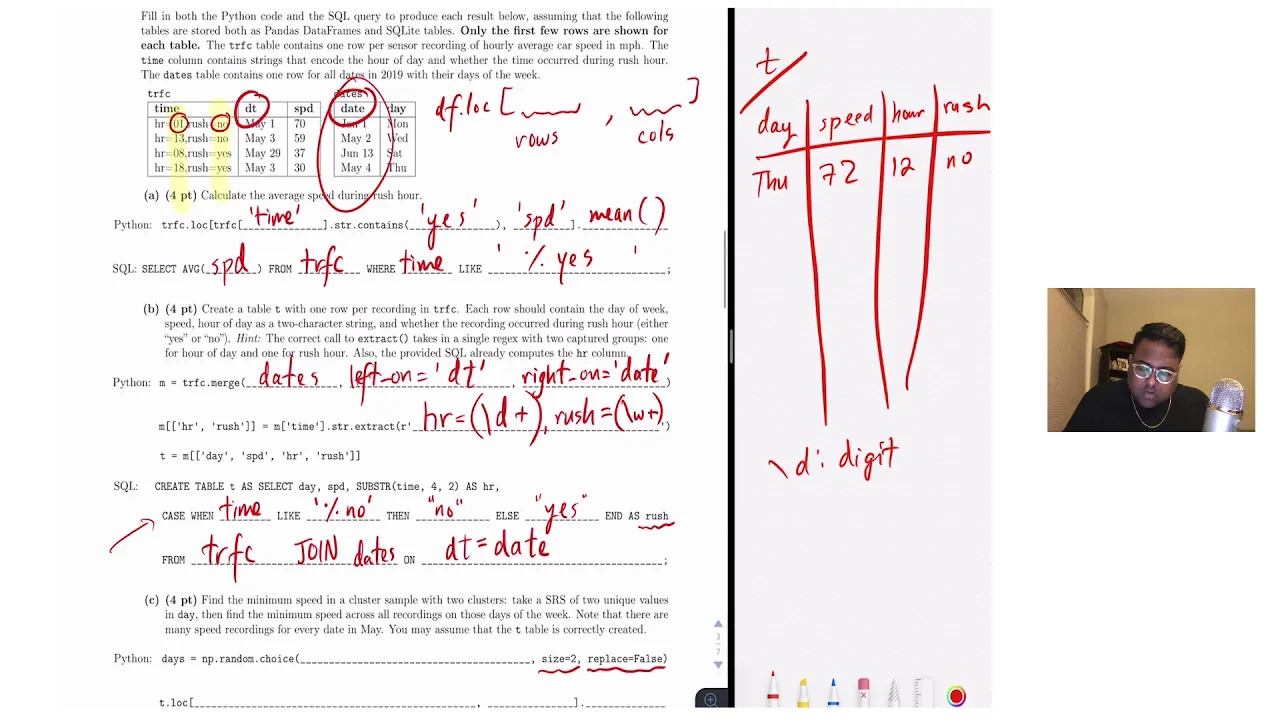 Fill in both the Python code and the SQL query to produce each result below, assuming that the following
tables are stored both as Pandas DataFrames and SQLite tables. Only the first few rows are shown for
each table. The trfc table contains one row per sensor recording of hourly average car speed in mph. The
time column contains strings that encode the hour of day and whether the time occurred during rush hour.
The dates table contains one row for all dates in 2019 with their days of the week.
trfc dates
time dt spd date day
hr=01,rush=no May 1 70 Jan 1 Mon
hr=13,rush=no May 3 59 May 2 Wed
hr=08,rush=yes May 29 37 Jun 13 Sat
hr=18,rush=yes May 3 30 May 4 Thu
df.loc [ , ]
rows cols
(a) (4 pt) Calculate the average speed during rush hour.
Python: trfc.loc[trfc['time'].str.contains('yes'), 'spd'].mean()
SQL: SELECT AVG(spd) FROM trfc WHERE time LIKE '%yes';
(b) (4 pt) Create a table t with one row per recording in trfc. Each row should contain the day of week,
speed, hour of day as a two-character string, and whether the recording occurred during rush hour (either
"yes" or "no"). Hint: The correct call to extract() takes in a single regex with two captured groups: one
for hour of day and one for rush hour. Also, the provided SQL already computes the hr column.
Python: m = trfc.merge(dates, left_on='dt', right_on='date')
m[['hr', 'rush']] = m['time'].str.extract(r'hr=(\d+),rush=(\w+)')
t = m[['day', 'spd', 'hr', 'rush']]
SQL: CREATE TABLE t AS SELECT day, spd, SUBSTR(time, 4, 2) AS hr,
CASE WHEN time LIKE '%no' THEN "no" ELSE "yes" END AS rush
FROM trfc JOIN dates ON dt=date;
(c) (4 pt) Find the minimum speed in a cluster sample with two clusters: take a SRS of two unique values
in day, then find the minimum speed across all recordings on those days of the week. Note that there are
many speed recordings for every date in May. You may assume that the t table is correctly created.
Python: days = np.random.choice(, size=2, replace=False)
t.loc[, ].
3
7
t
day speed hour rush
Thu 72 12 no
\d: digit